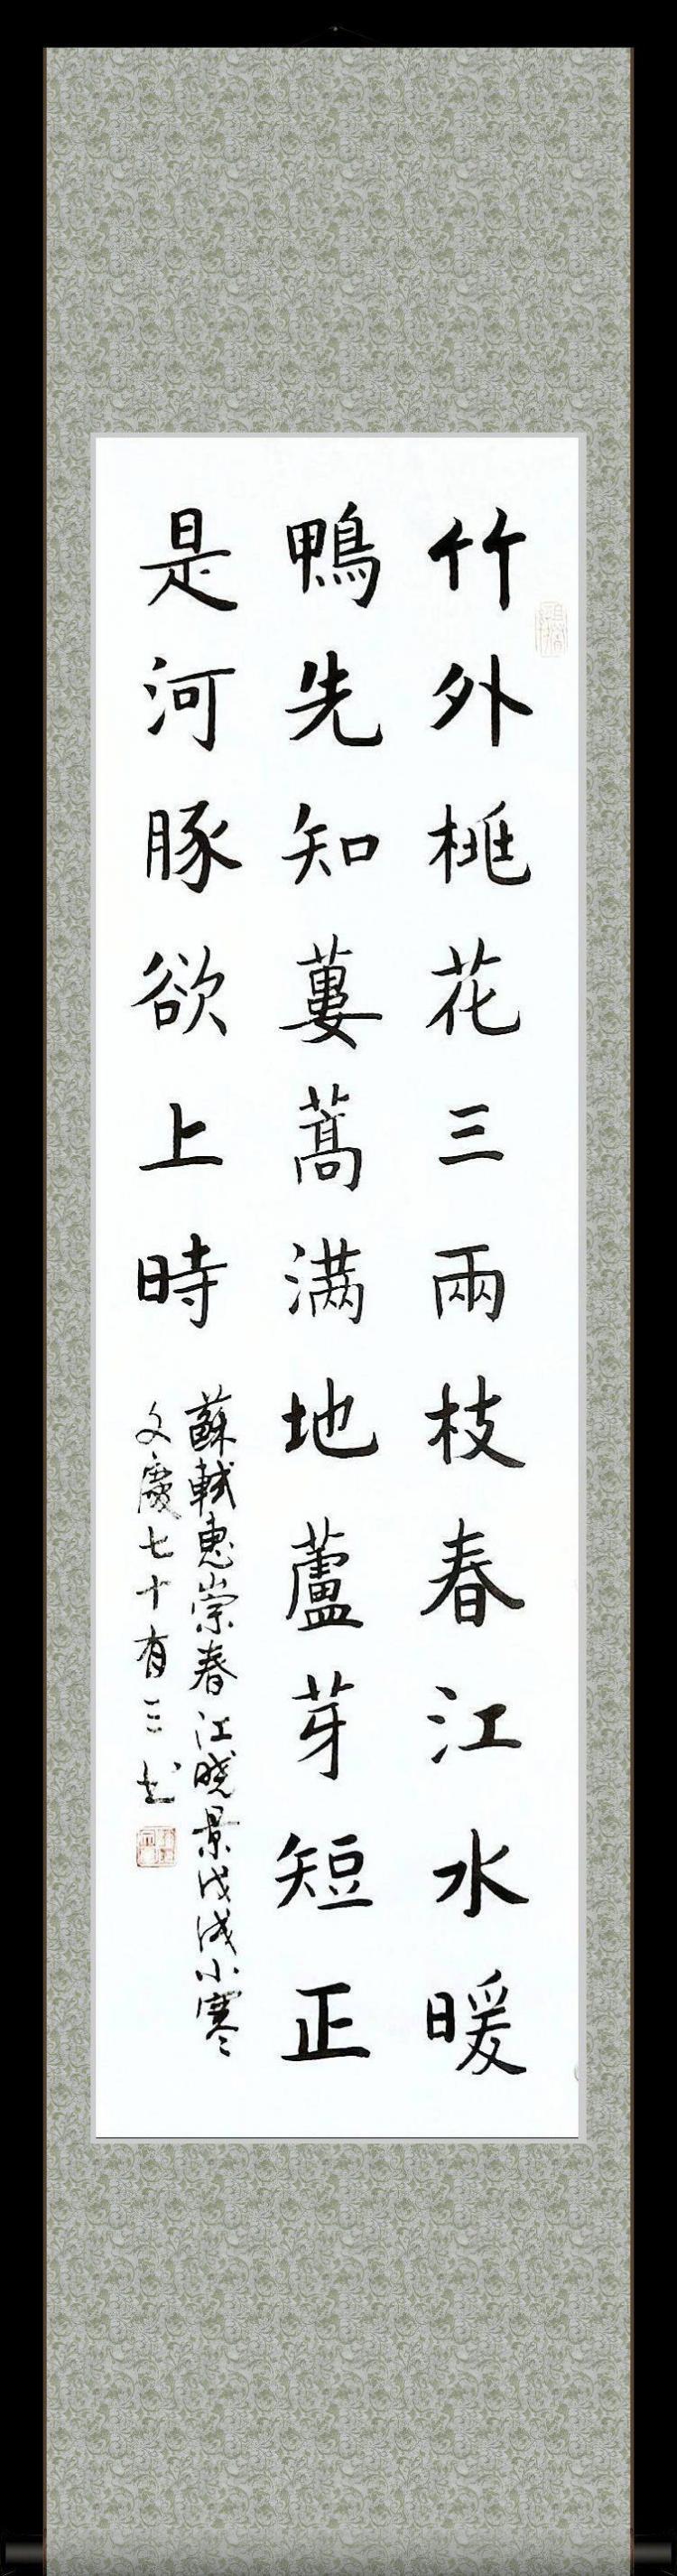 竹外桃花三兩枝春江水暖
鴨先知蔞蒿滿地蘆芽短正
是河豚欲上時
蘇軾惠崇春江曉景戊戌小寒
文慶七十有三书